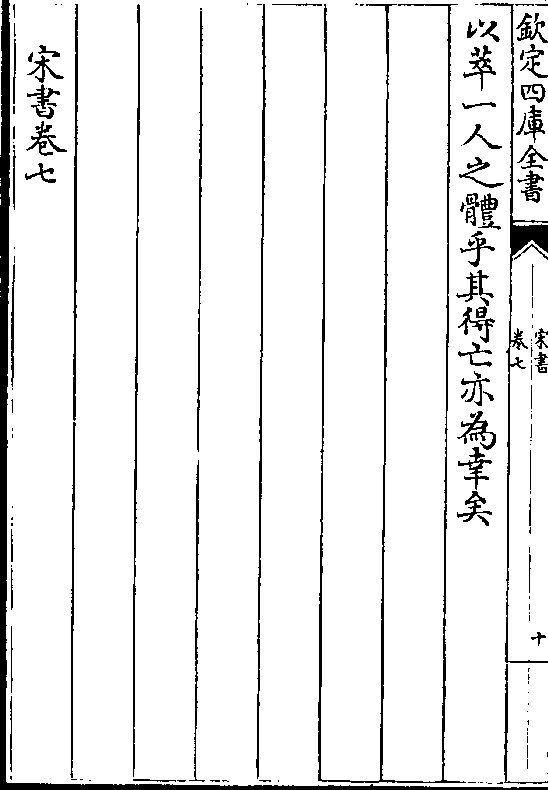 欽定四庫全書
宋書
卷七
十
以萃一人之體乎其得亡亦為幸矣
宋書卷七